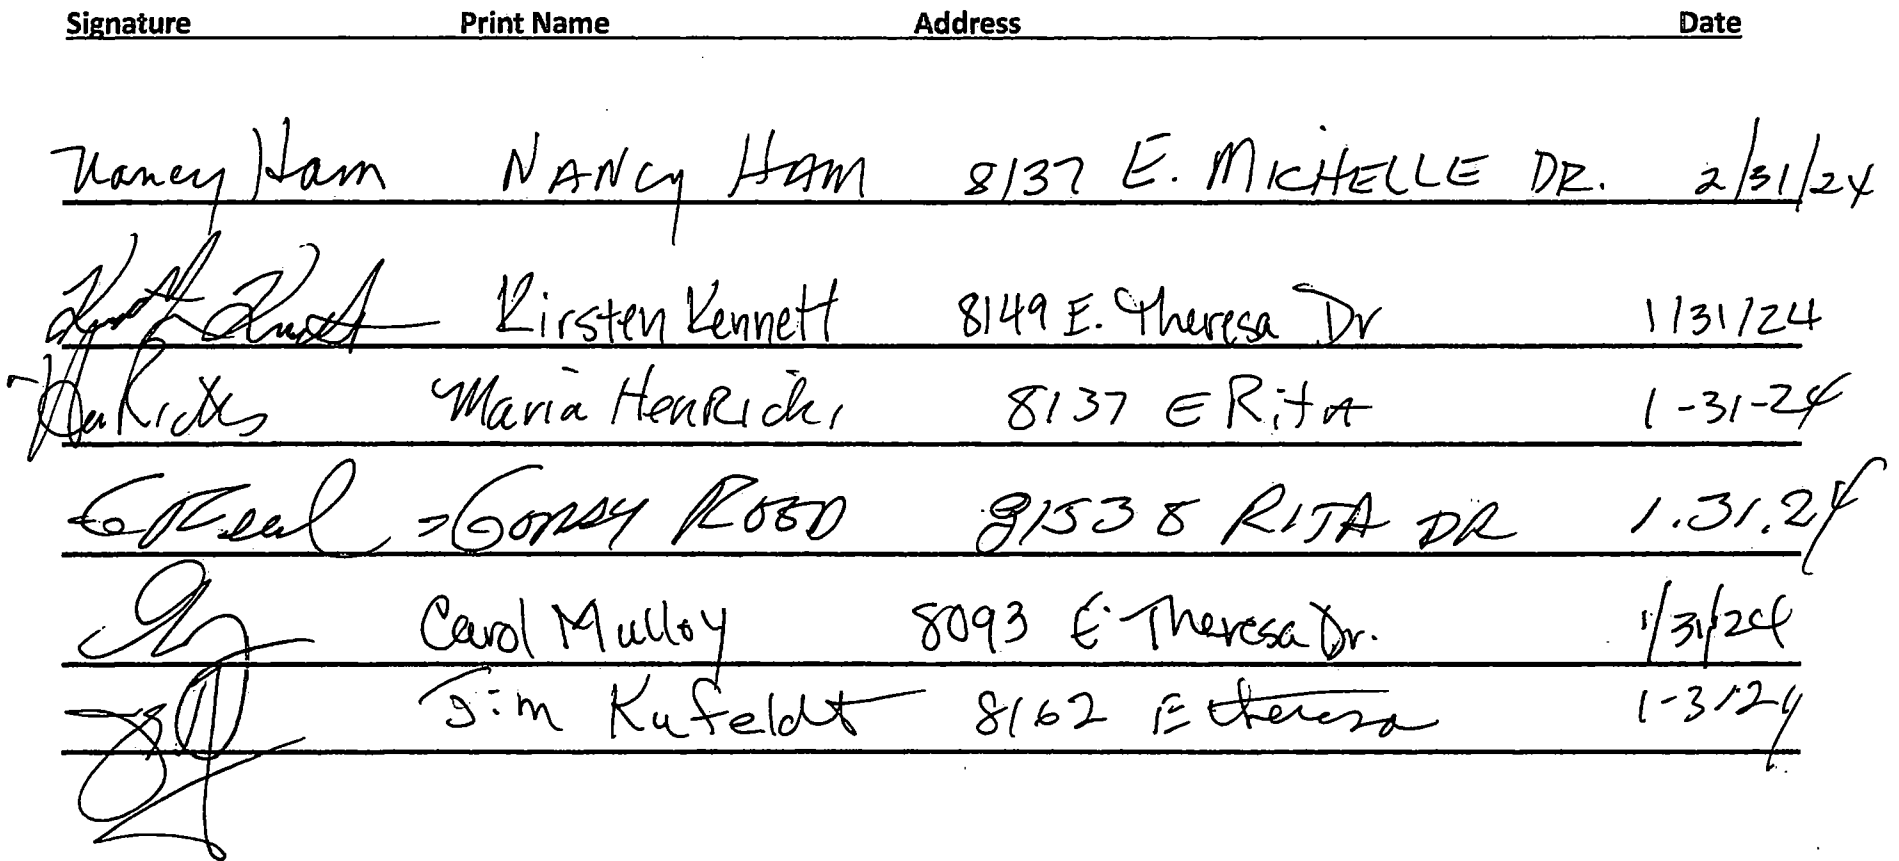 Signature Print Name Address Date
Nancy Ham NANCY HAM 8137 E. MICHELLE DR. 2/31/24
Kirsten Kennett 8149 E. Theresa Dr 1/31/24
HenRicks Maria HenRicks 8137 E RitA 1-31-24
RITA DR 1.31.24
Carol Mulloy 8093 E Theresa Dr. 1/31/24
Jim Kufeldt 8162 E theresa 1-31-24